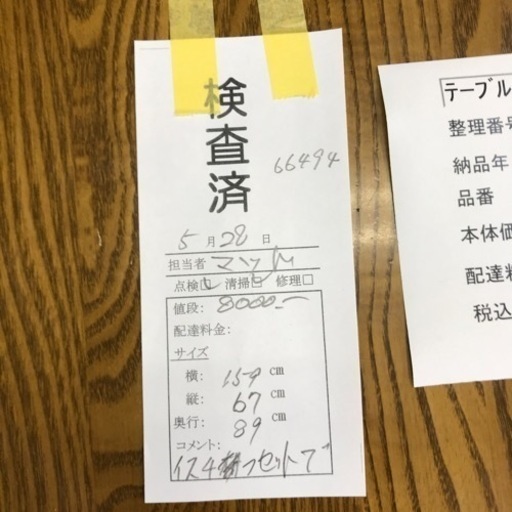 検査済
66494
5月28日
担当者 マツ
点検☑ 清掃☑ 修理☐
値段: 8000.-
配達料金:
サイズ
横: 159cm
縦: 67cm
奥行: 89cm
コメント:
イス4 セット
テーブル
整理番号
納品年
品番
本体価
配達料
税込